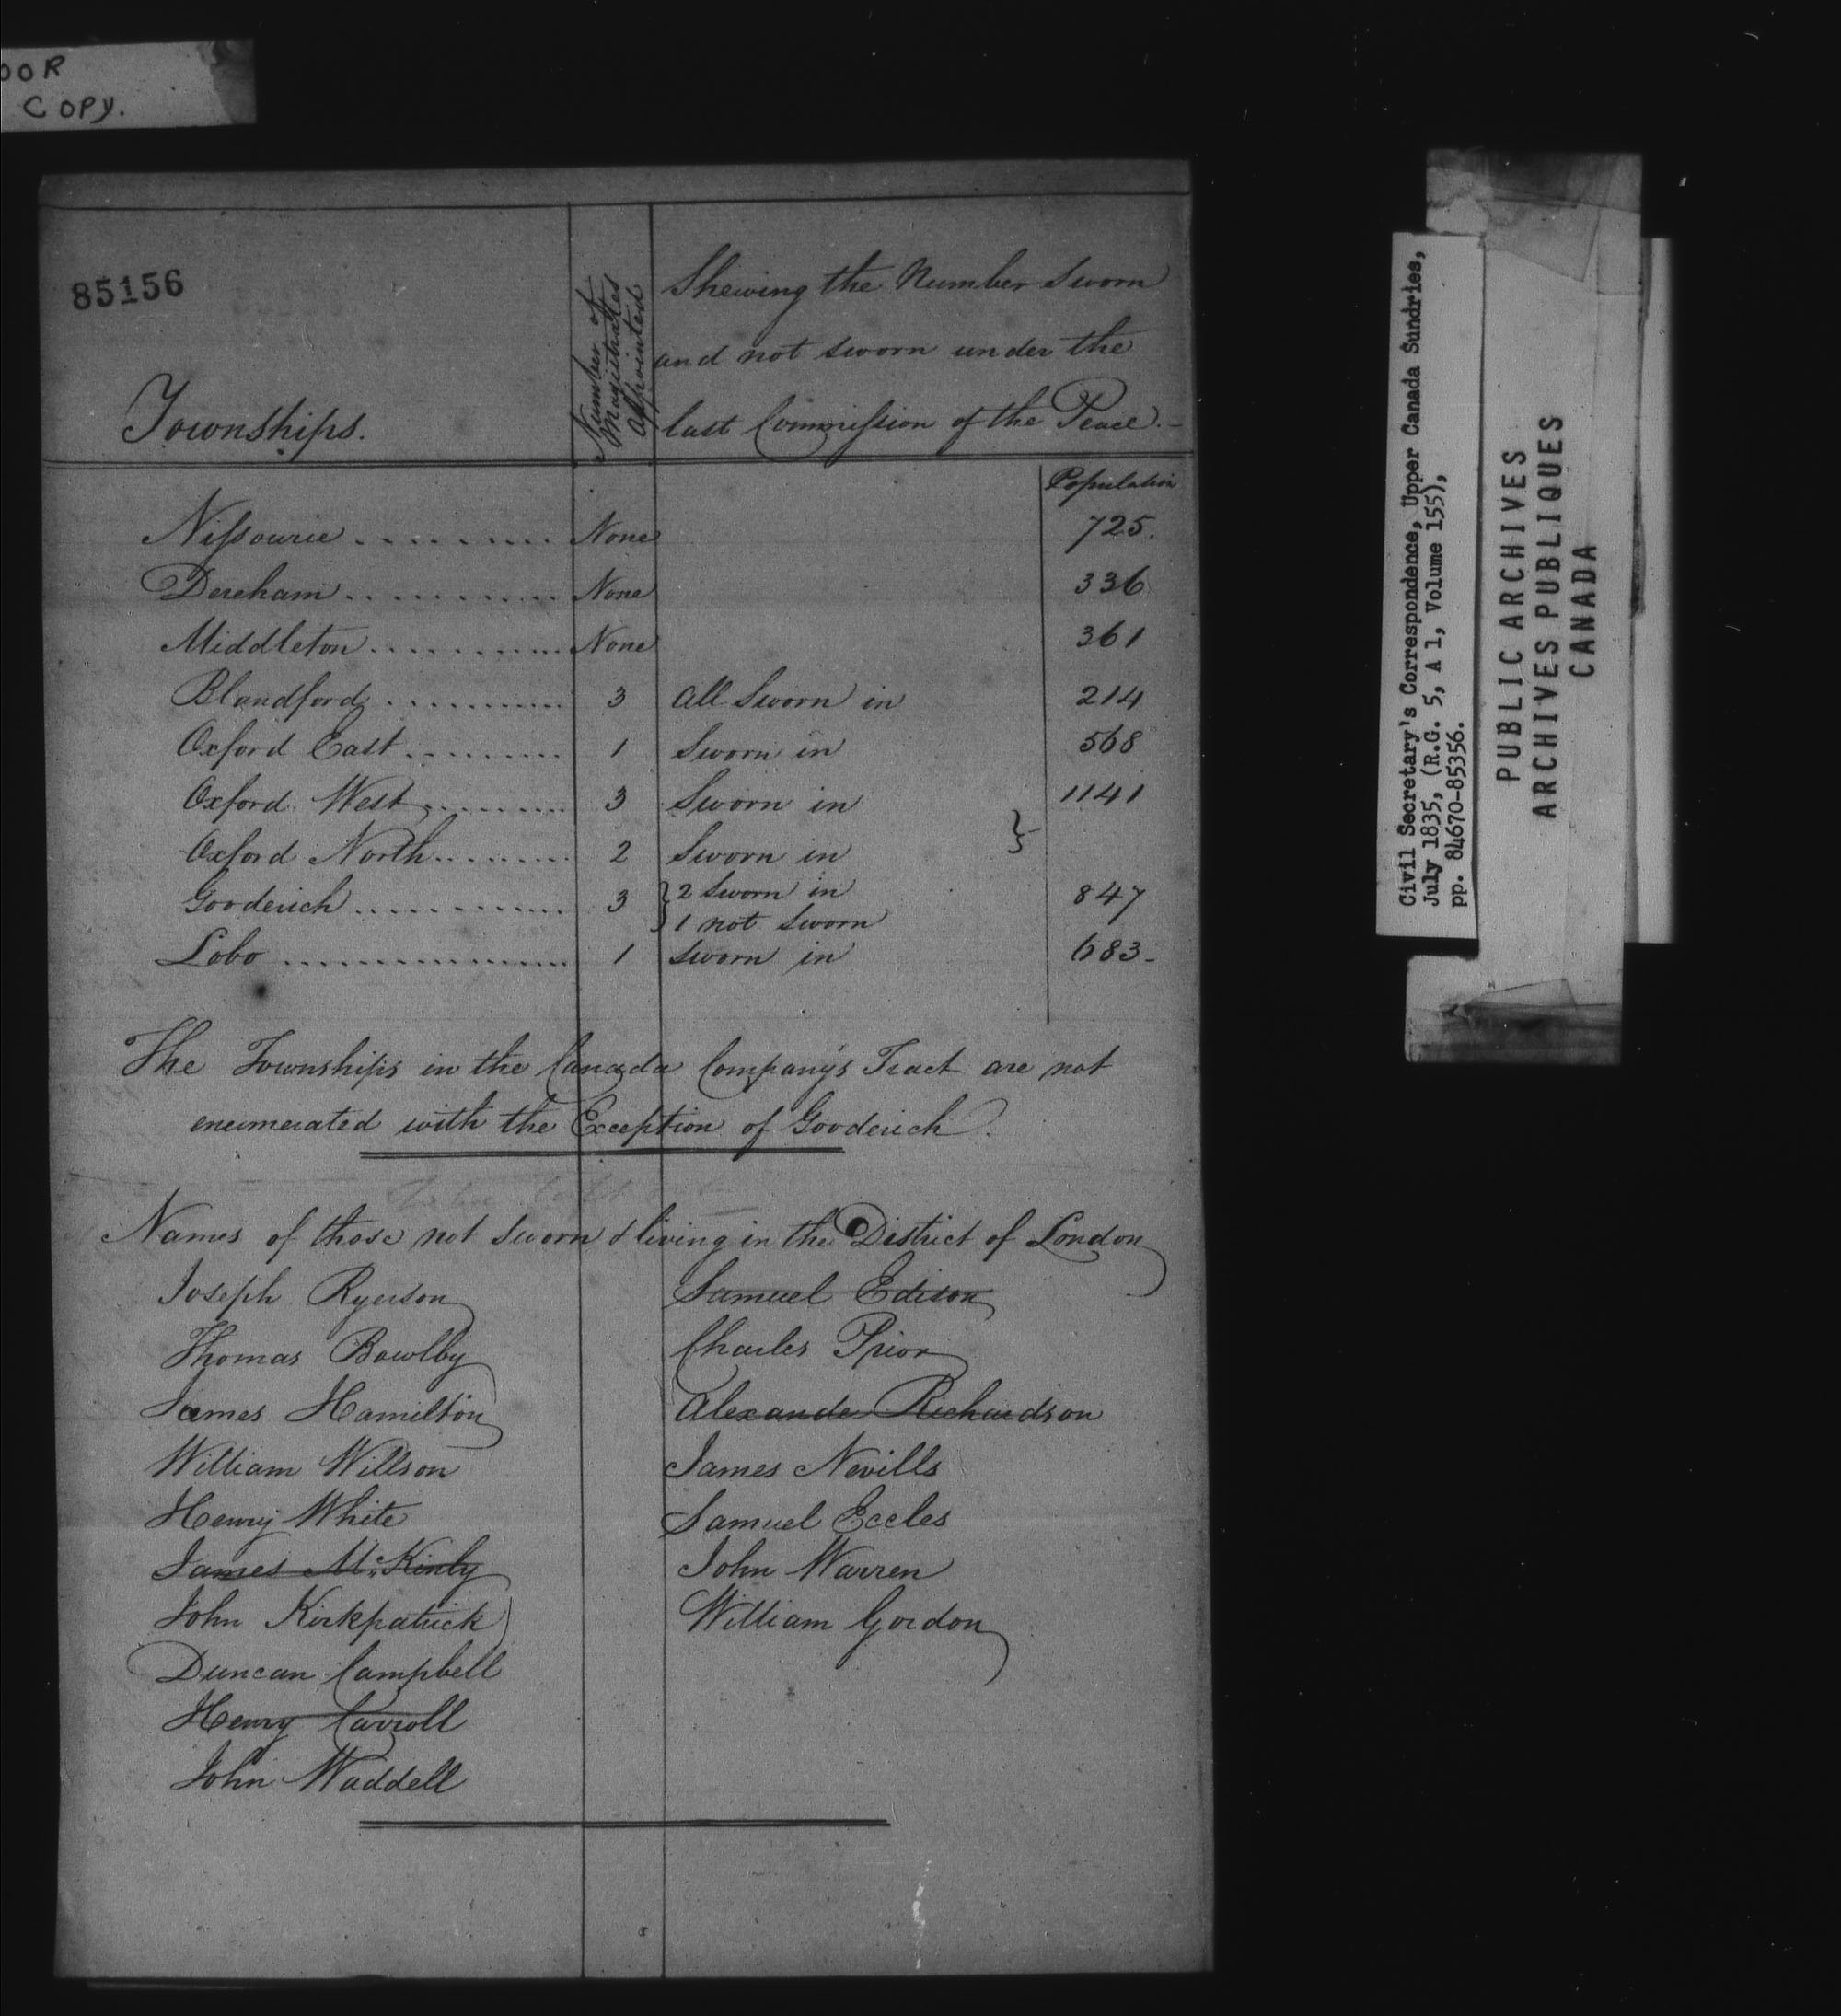 OOR
COPY.
85156
Townships.
Number of
Magistrates
Appointed
Shewing the Number Sworn
and not sworn under the
last Commission of the Peace.-
Population
Nissourie .......... None 725.
Dereham ............ None 336
Middleton ........... None 361
Blandford ........... 3 all Sworn in 214
Oxford East .......... 1 Sworn in 568
Oxford West .......... 3 Sworn in 1141
Oxford North ......... 2 Sworn in }
Gooderich ............ 3 { 2 Sworn in 847
1 not Sworn
Lobo ................. 1 sworn in 683-
The Townships in the Canada Company's Tract are not
enumerated with the Exception of Gooderich.
To be left
Names of those not Sworn & living in the District of London
Joseph Ryerson Samuel Edison
Thomas Bowlby Charles Prior
James Hamilton Alexander Richardson
William Willson James Nevills
Henry White Samuel Eccles
James McKinly John Warren
John Kirkpatrick William Gordon
Duncan Campbell
Henry Carroll
John Waddell
Civil Secretary's Correspondence, Upper Canada Sundries,
July 1835, (R.G. 5, A 1, Volume 155),
pp. 84670-85356.
PUBLIC ARCHIVES
ARCHIVES PUBLIQUES
CANADA